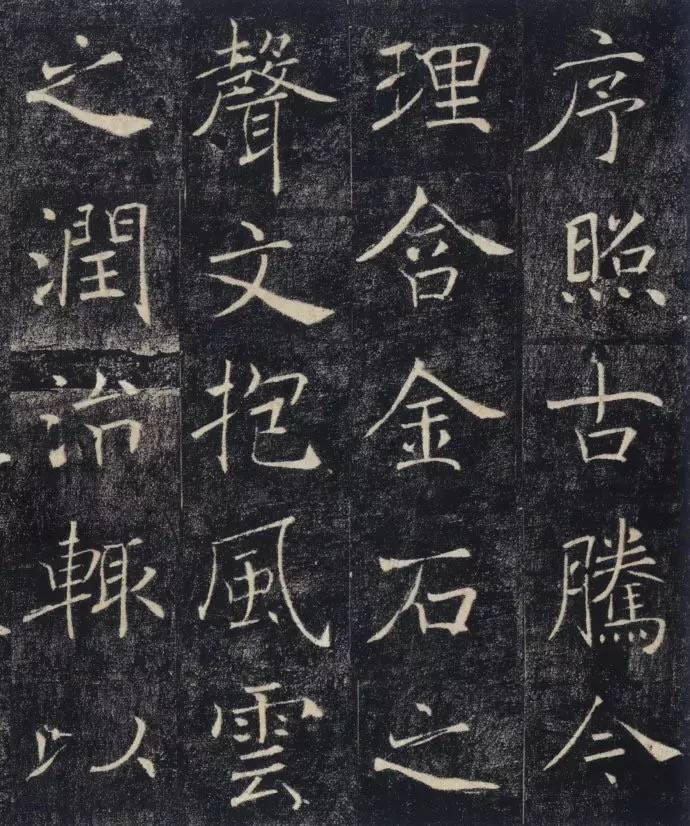 序照古騰今
理含金石之
聲文抱風雲
之潤治輙以